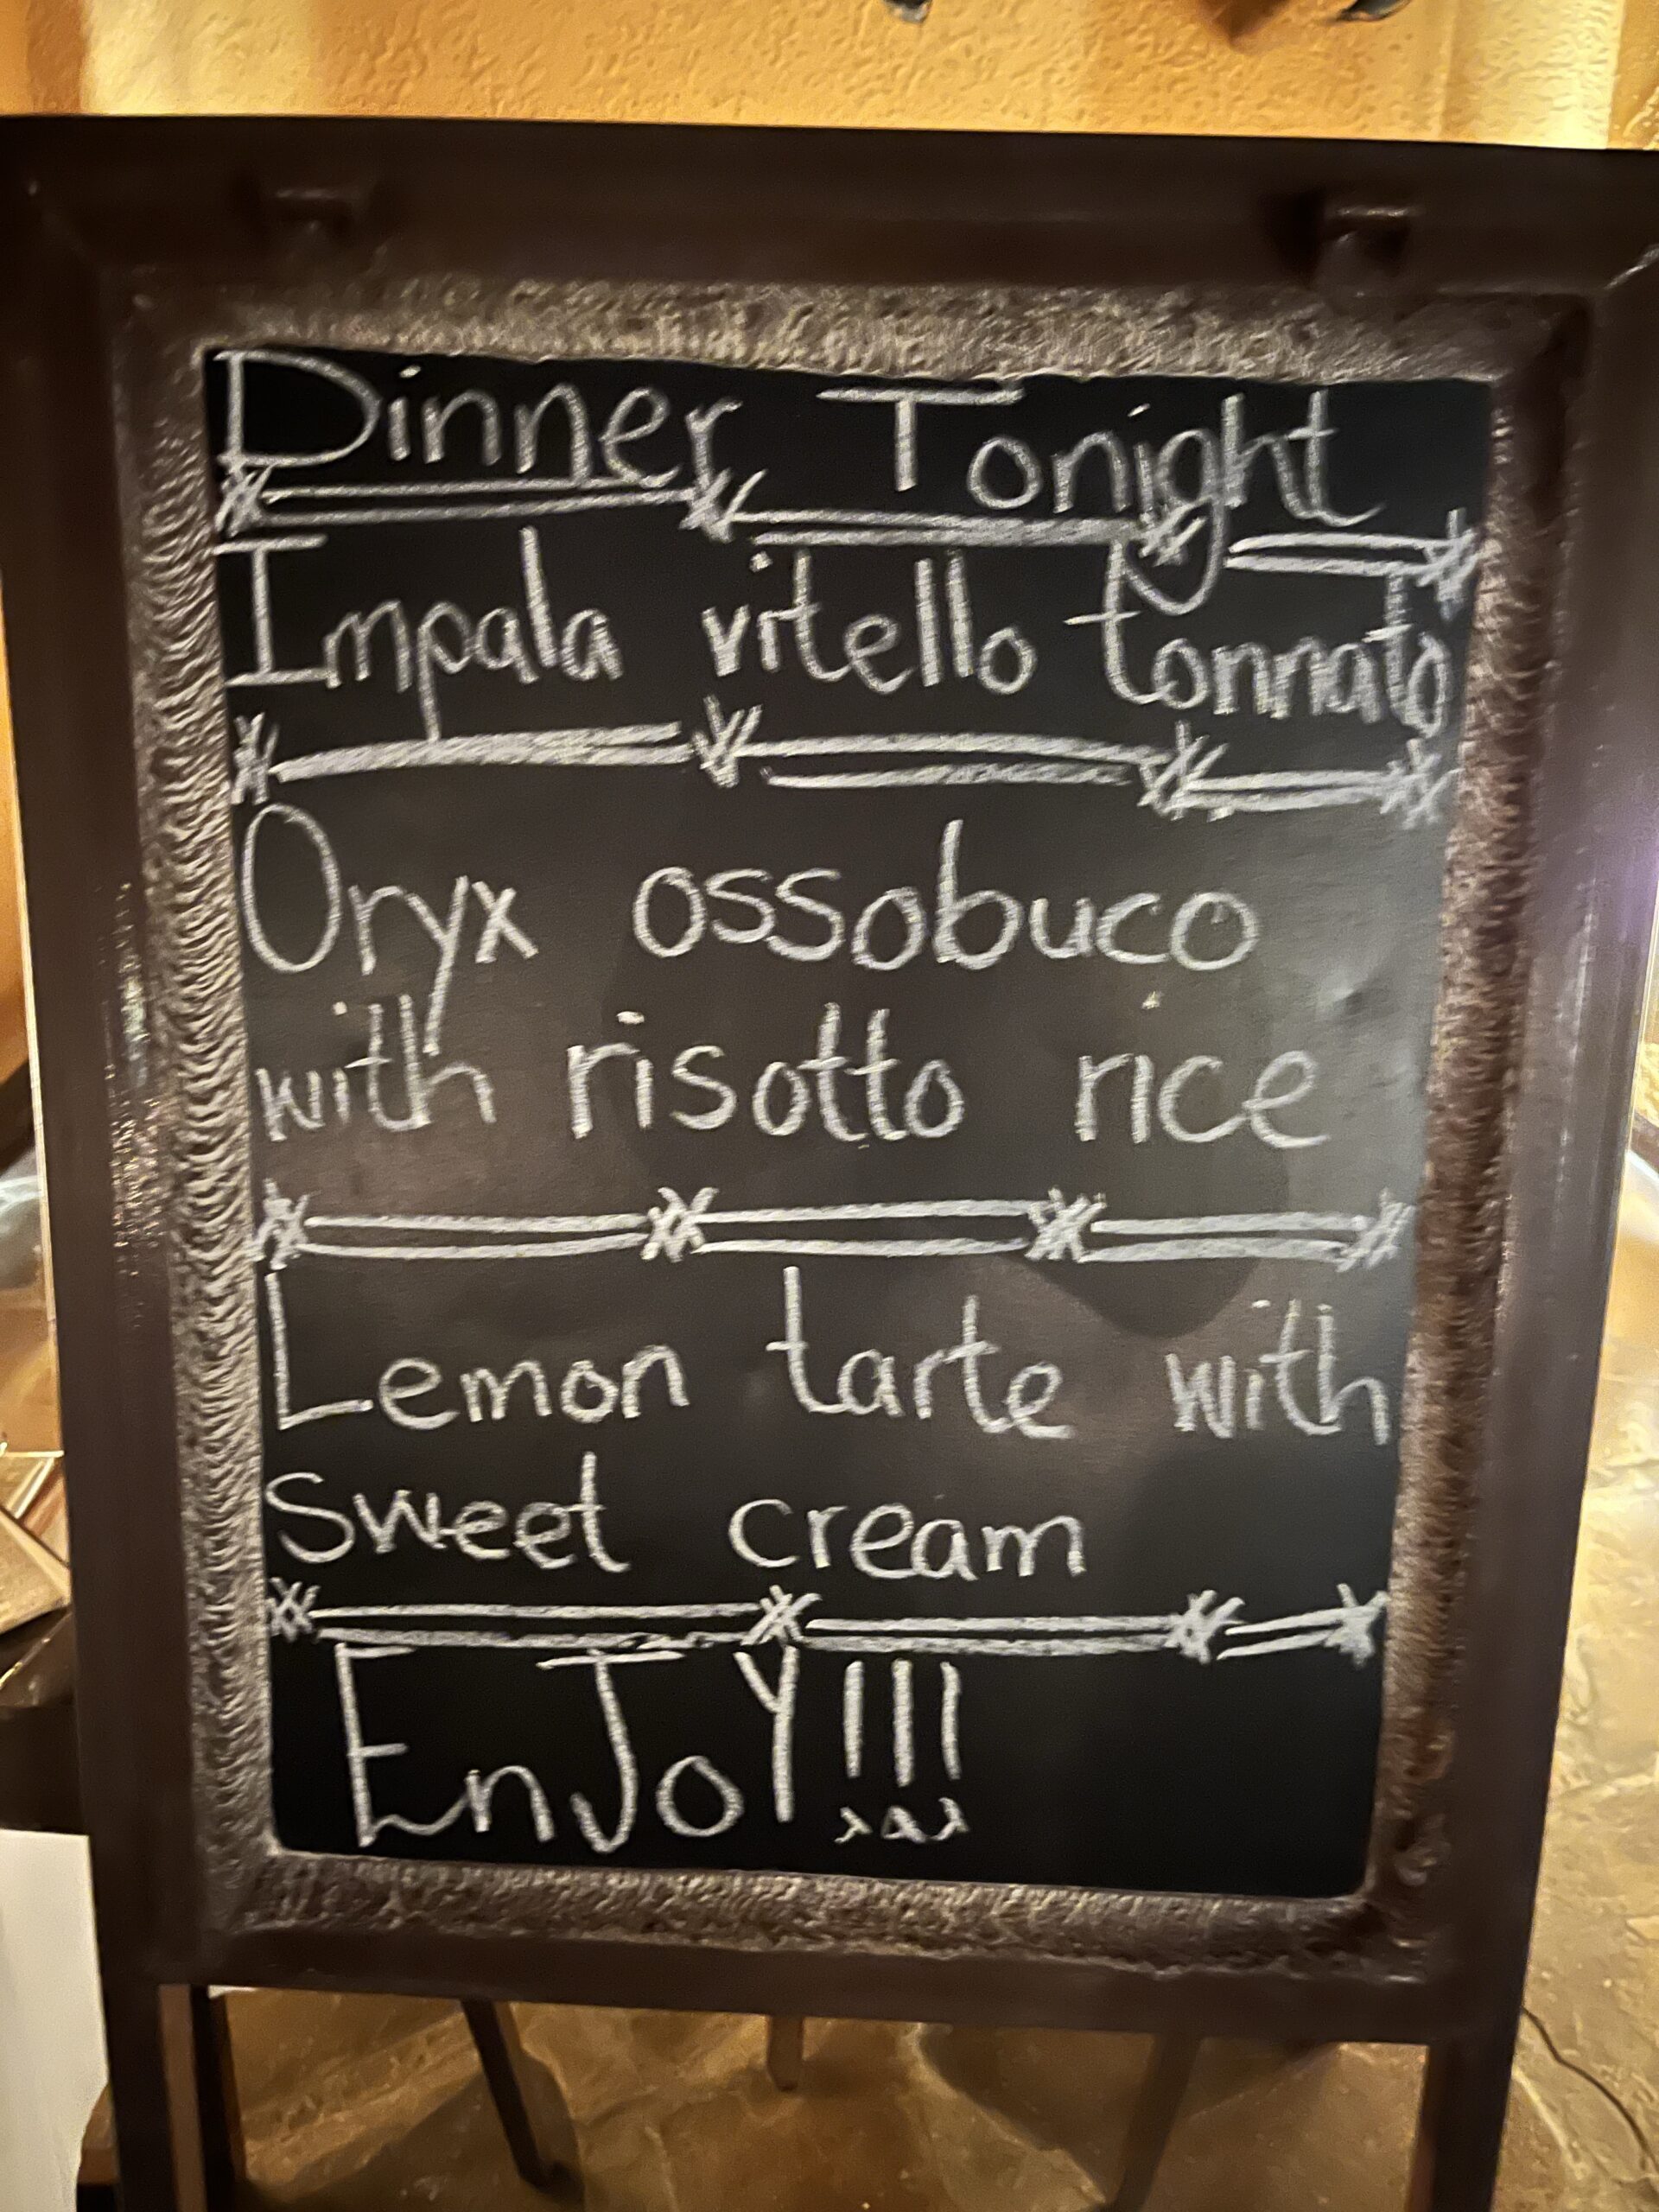 Dinner Tonight
Impala vitello tonnato
Oryx ossobuco
with risotto rice
Lemon tarte with
Sweet cream
EnJoY!!!